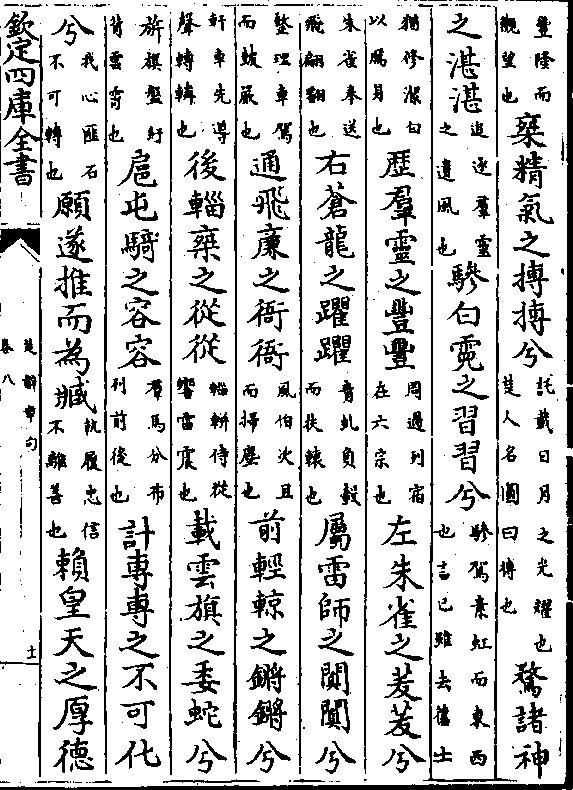 豐隆而觀望也椉精氣之摶摶兮託載日月之光耀也楚人名圓曰摶也騖諸神
之湛湛追逐羣靈之遺風也驂白霓之習習兮驂駕素虹而東西也言已雖去舊土
猶修潔白以厲身也歷羣靈之豐豐周過列宿在六宗也左朱雀之茇茇兮
朱雀奉送飛翩翩也右蒼龍之躍躍青虬負轂而扶轅也屬雷師之闐闐兮
整理車駕而鼓嚴也通飛廉之衙衙風伯次且而掃塵也前輕輬之鏘鏘兮
軒車先導聲轉轔也後輜椉之從從輜軿侍從響雷震也載雲旗之委蛇兮
旂旗盤紆背雲霄也扈屯騎之容容羣馬分布列前後也計專專之不可化
兮我心匪石不可轉也願遂推而為臧執履忠信不離善也賴皇天之厚德
欽定四庫全書
楚辭章句
卷八
十一